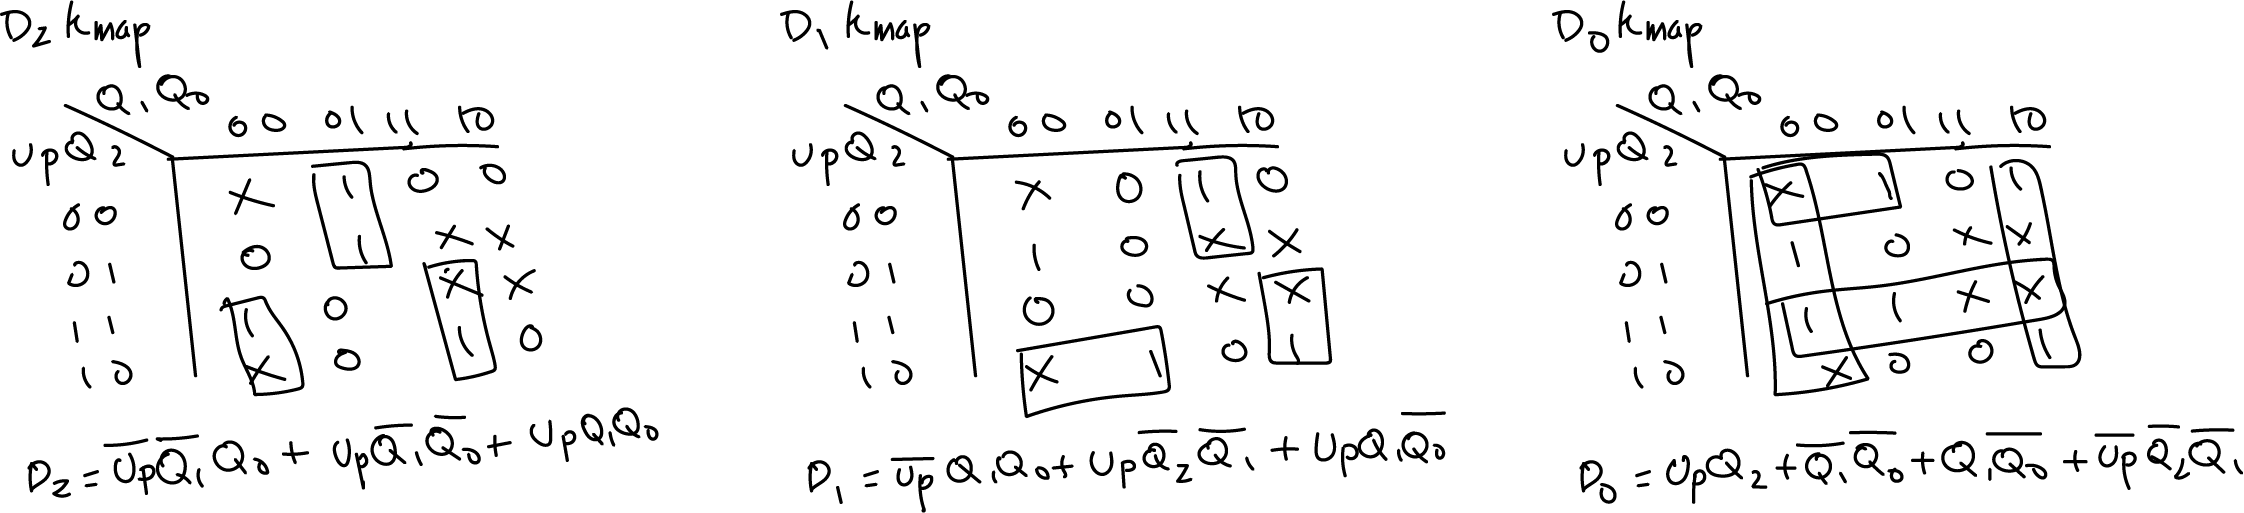 D₂ kmap
Q₁Q₀
00 01 11 10
UpQ₂
00 X 1 0 0
01 0 1 X X
11 1 0 X X
10 X 0 1 0
D₂ = U̅p̅ Q̅₁ Q₀ + Up Q̅₁ Q̅₀ + Up Q₁ Q₀
D₁ kmap
Q₁Q₀
00 01 11 10
UpQ₂
00 X 0 1 0
01 1 0 X X
11 0 0 X X
10 X 1 0 1
D₁ = U̅p̅ Q₁ Q₀ + Up Q̅₂ Q̅₁ + Up Q₁ Q̅₀
D₀ kmap
Q₁Q₀
00 01 11 10
UpQ₂
00 X 1 0 1
01 1 0 X X
11 1 1 X X
10 X 0 0 1
D₀ = Up Q₂ + Q̅₁ Q̅₀ + Q₁ Q̅₀ + U̅p̅ Q̅₂ Q̅₁